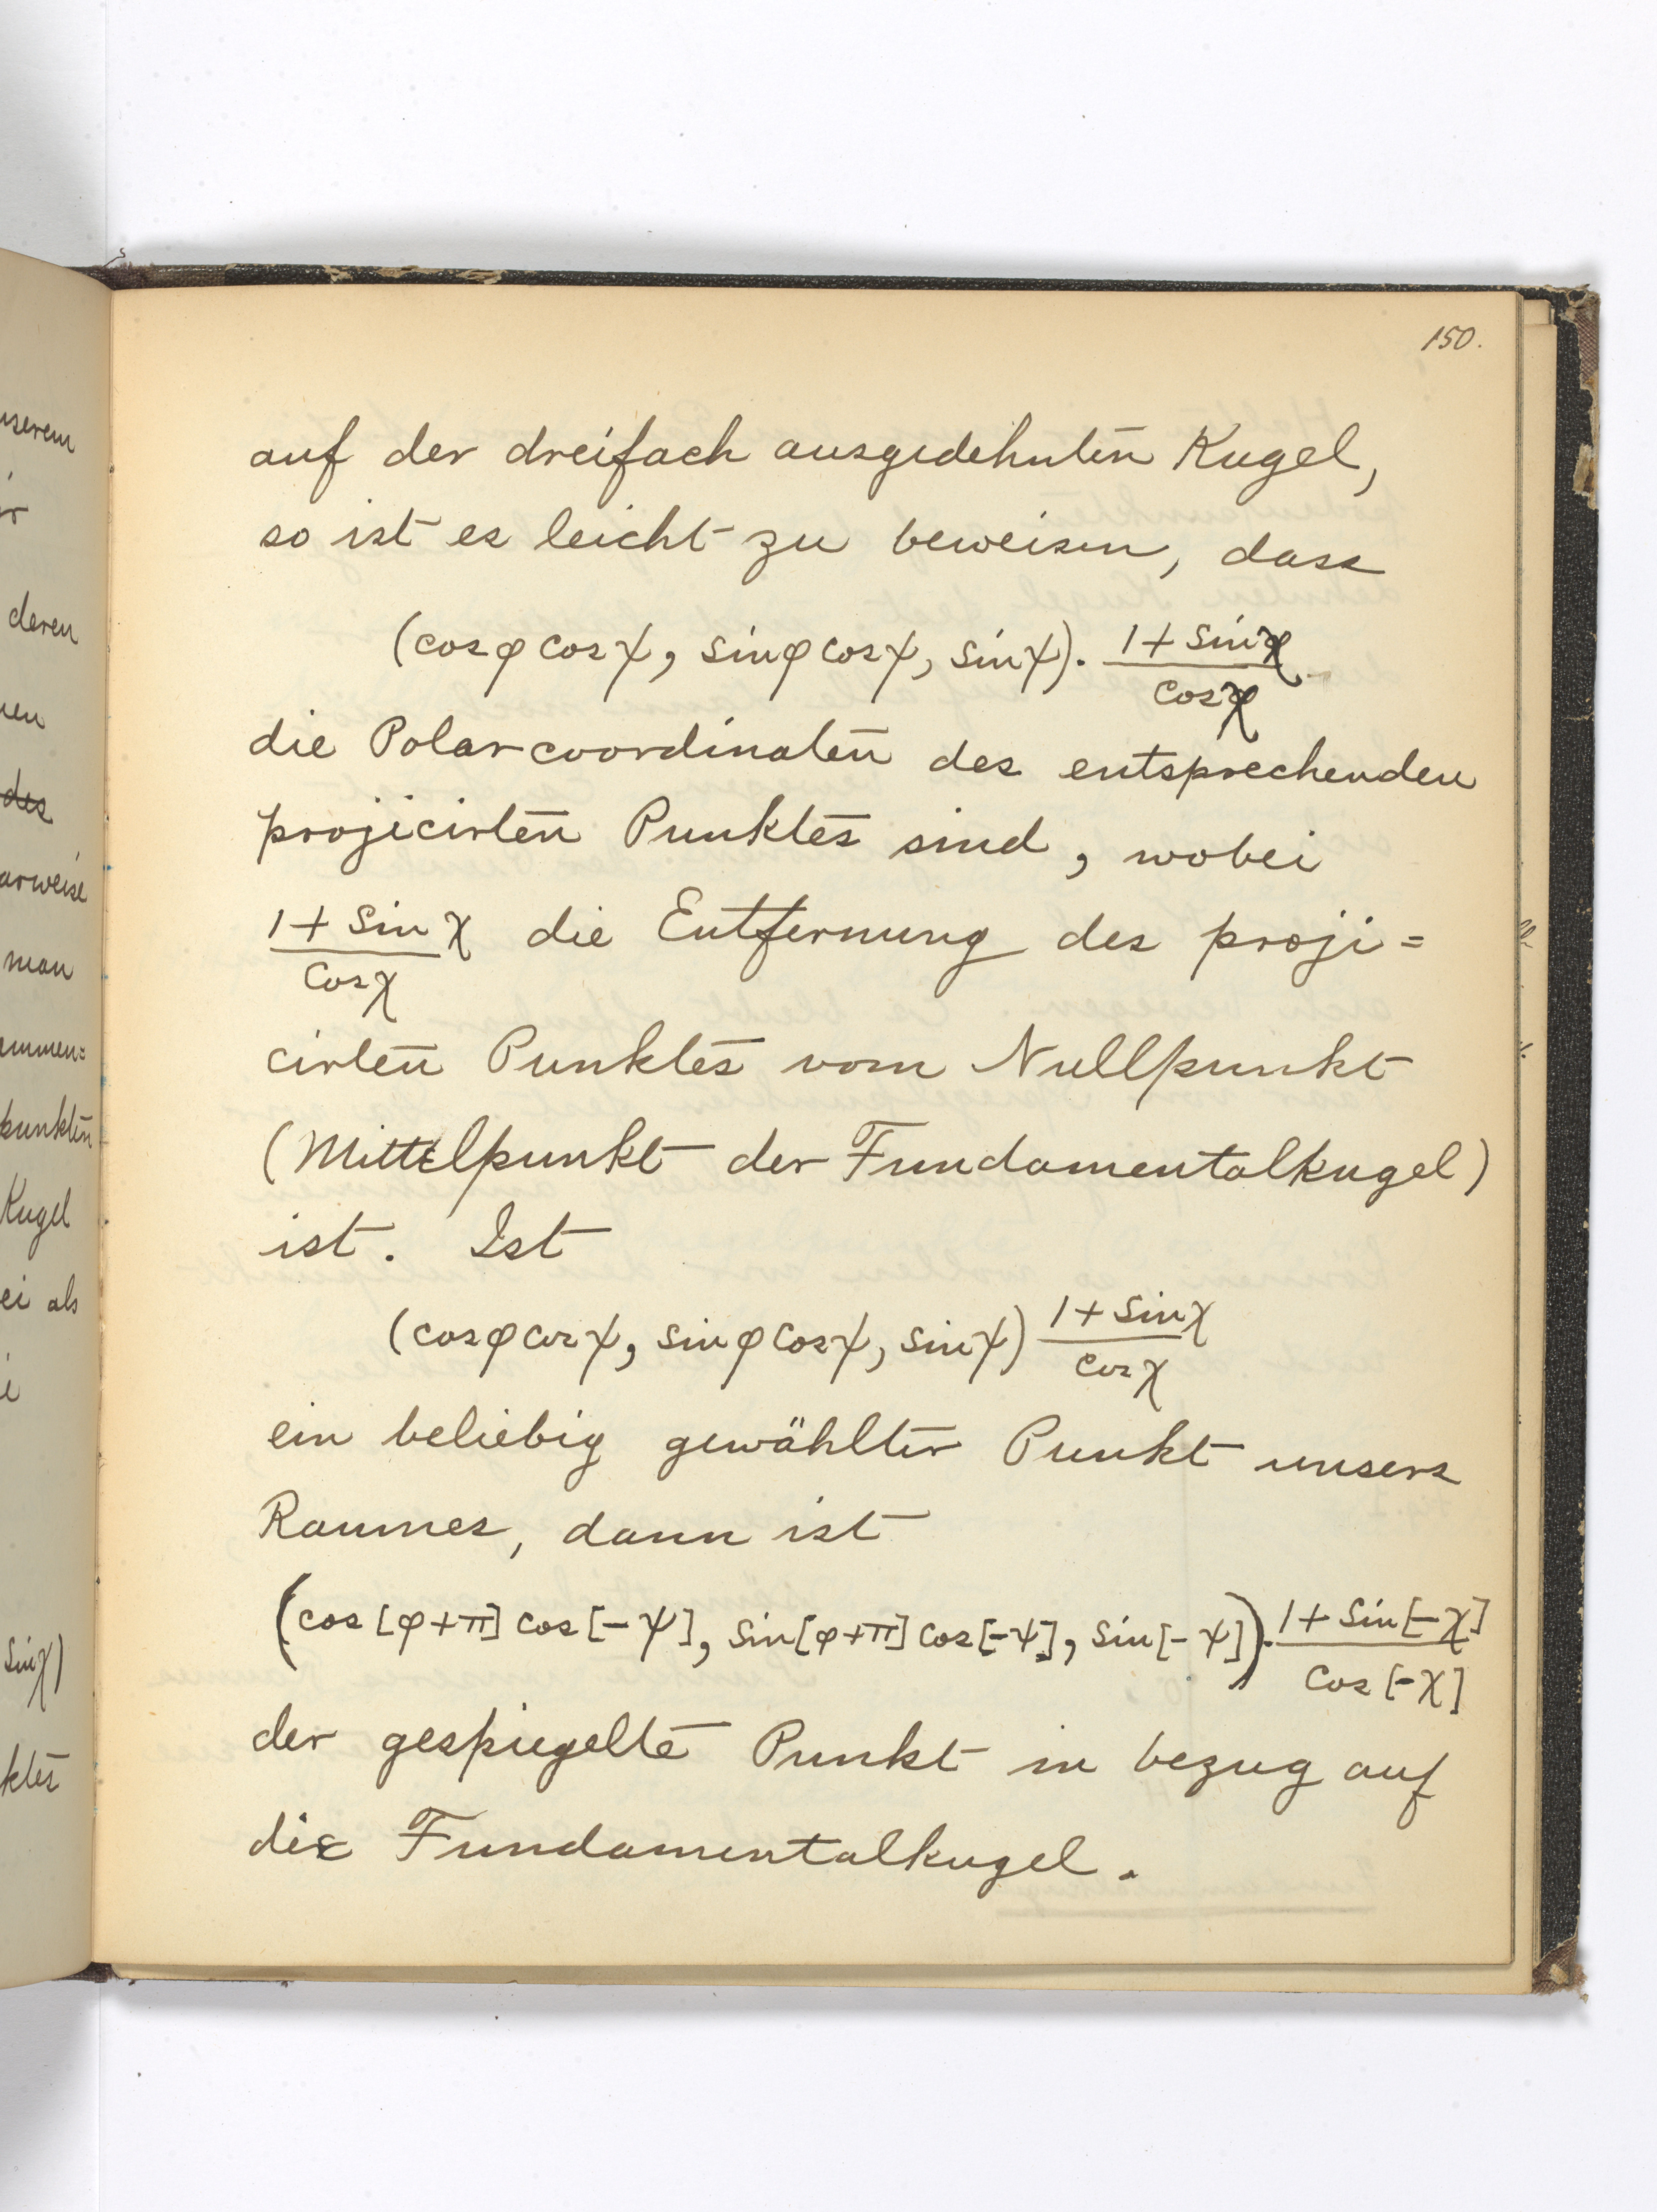 150.
auf der dreifach ausgedehnten Kugel,
so ist es leicht zu beweisen, dass
(cosφ cosψ, sinφ cosψ, sinψ). (1 + sinχ)/(cosχ)
die Polarcoordinaten des entsprechenden
projicirten Punktes sind, wobei
(1 + sin χ)/(cosχ) die Entfernung des proji=
cirten Punktes vom Nullpunkt
(Mittelpunkt der Fundamentalkugel)
ist. Ist
(cosφ cosψ, sinφ cosψ, sinψ) (1 + sinχ)/(cosχ)
ein beliebig gewählter Punkt unsers
Raumes, dann ist
(cos[φ+π] cos[-ψ], sin[φ+π] cos[-ψ], sin[-ψ]). (1 + sin[-χ])/(cos[-χ])
der gespiegelte Punkt in bezug auf
die Fundamentalkugel.
nserem
deren
des
arweise
man
mmen=
punkten
Kugel
ei als
sinχ)
ktes